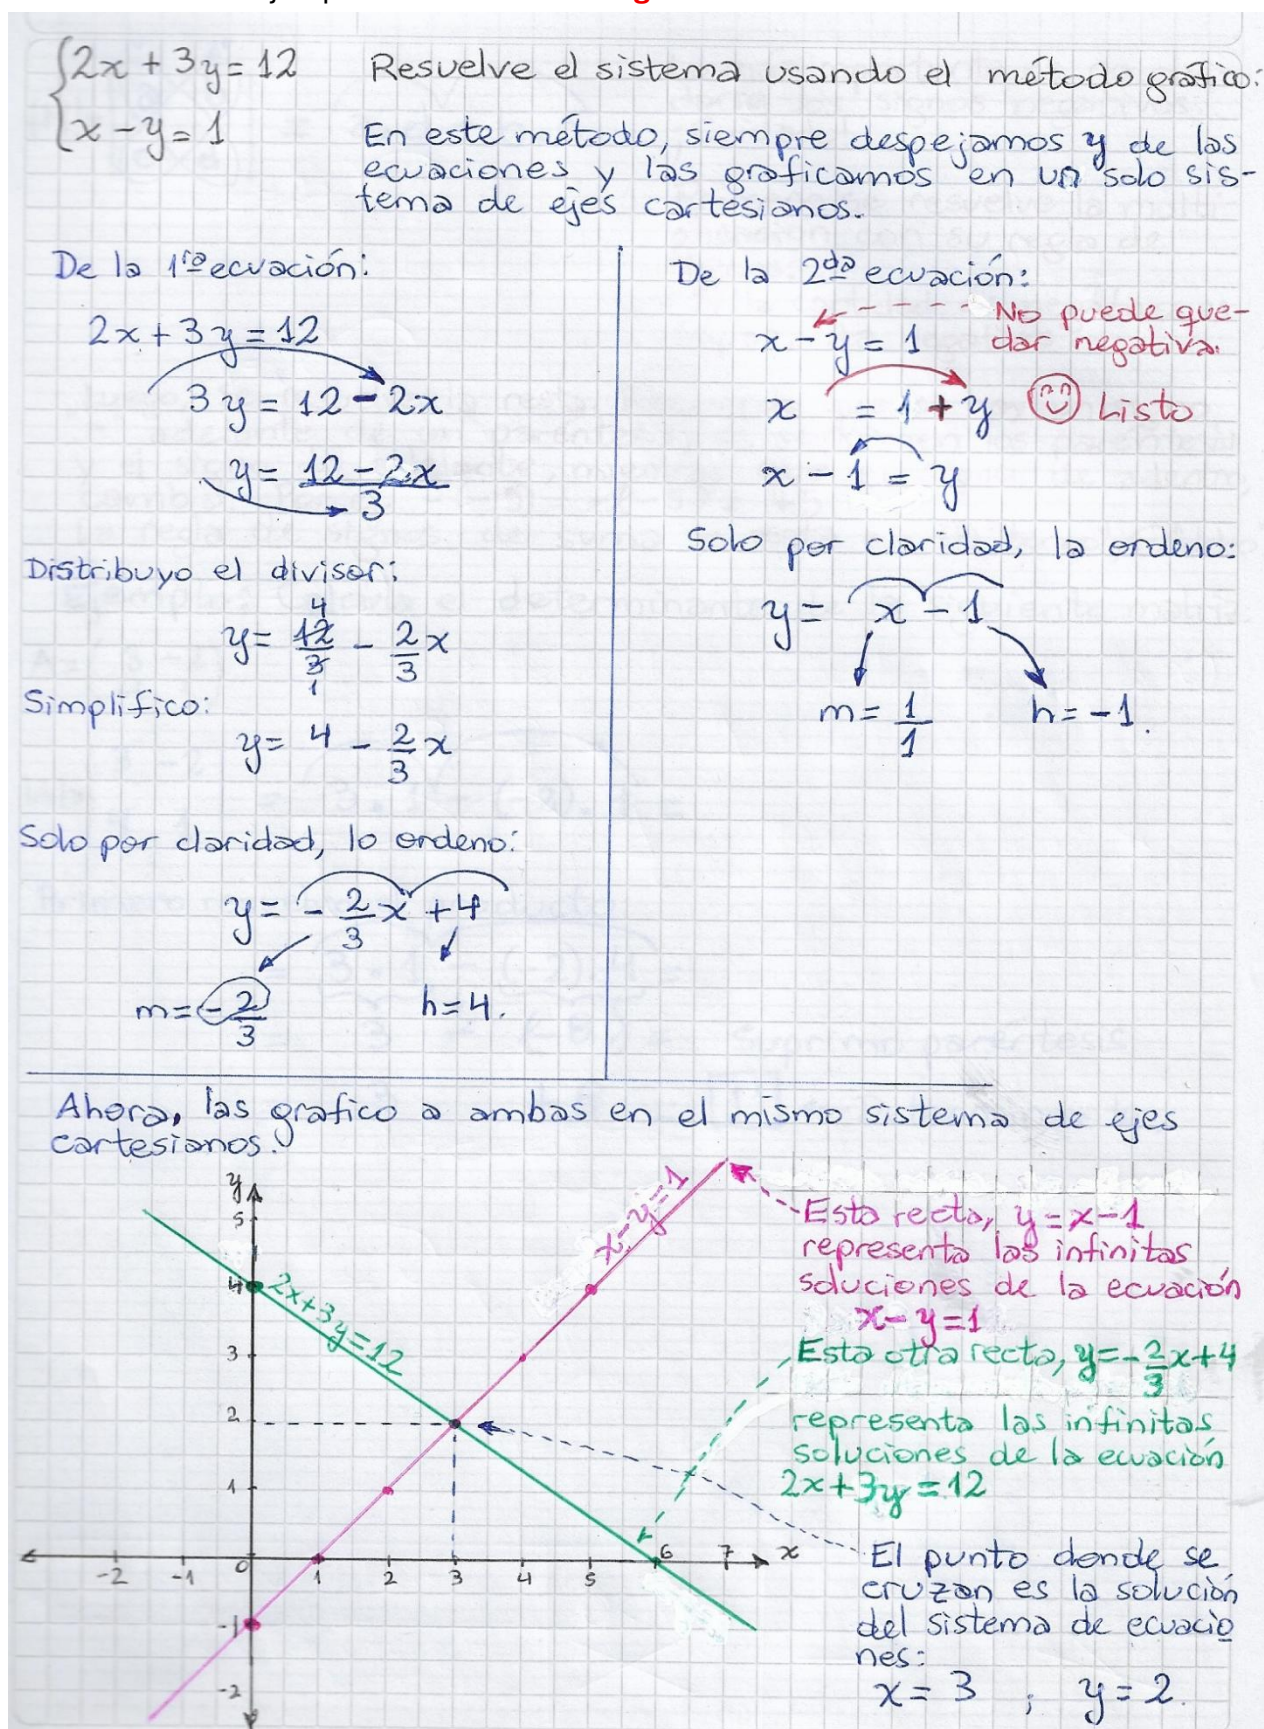 {2x + 3y = 12
x - y = 1
Resuelve el sistema usando el método gráfico:
En este método, siempre despejamos y de las
ecuaciones y las graficamos en un solo sis-
tema de ejes cartesianos.
De la 1ra ecuación:
2x + 3y = 12
3y = 12 - 2x
y = 12 - 2x
3
Distribuyo el divisor:
4
y = 12/3 - 2/3 x
1
Simplifico:
y = 4 - 2/3 x
Solo por claridad, lo ordeno:
y = - 2/3 x + 4
m = - 2/3 h = 4.
De la 2da ecuación:
No puede que-
dar negativa.
x - y = 1
x = 1 + y Listo
x - 1 = y
Solo por claridad, la ordeno:
y = x - 1
m = 1/1 h = -1.
Ahora, las grafico a ambas en el mismo sistema de ejes
cartesianos.
y
5
4
3
2
1
0
-1
-2
-2 -1 1 2 3 4 5 6 7 x
2x+3y=12
x-y=1
Esta recta, y = x - 1
representa las infinitas
soluciones de la ecuación
x - y = 1
Esta otra recta, y = - 2/3 x + 4
representa las infinitas
soluciones de la ecuación
2x + 3y = 12
El punto donde se
cruzan es la solución
del sistema de ecuacio
nes:
x = 3 ; y = 2.